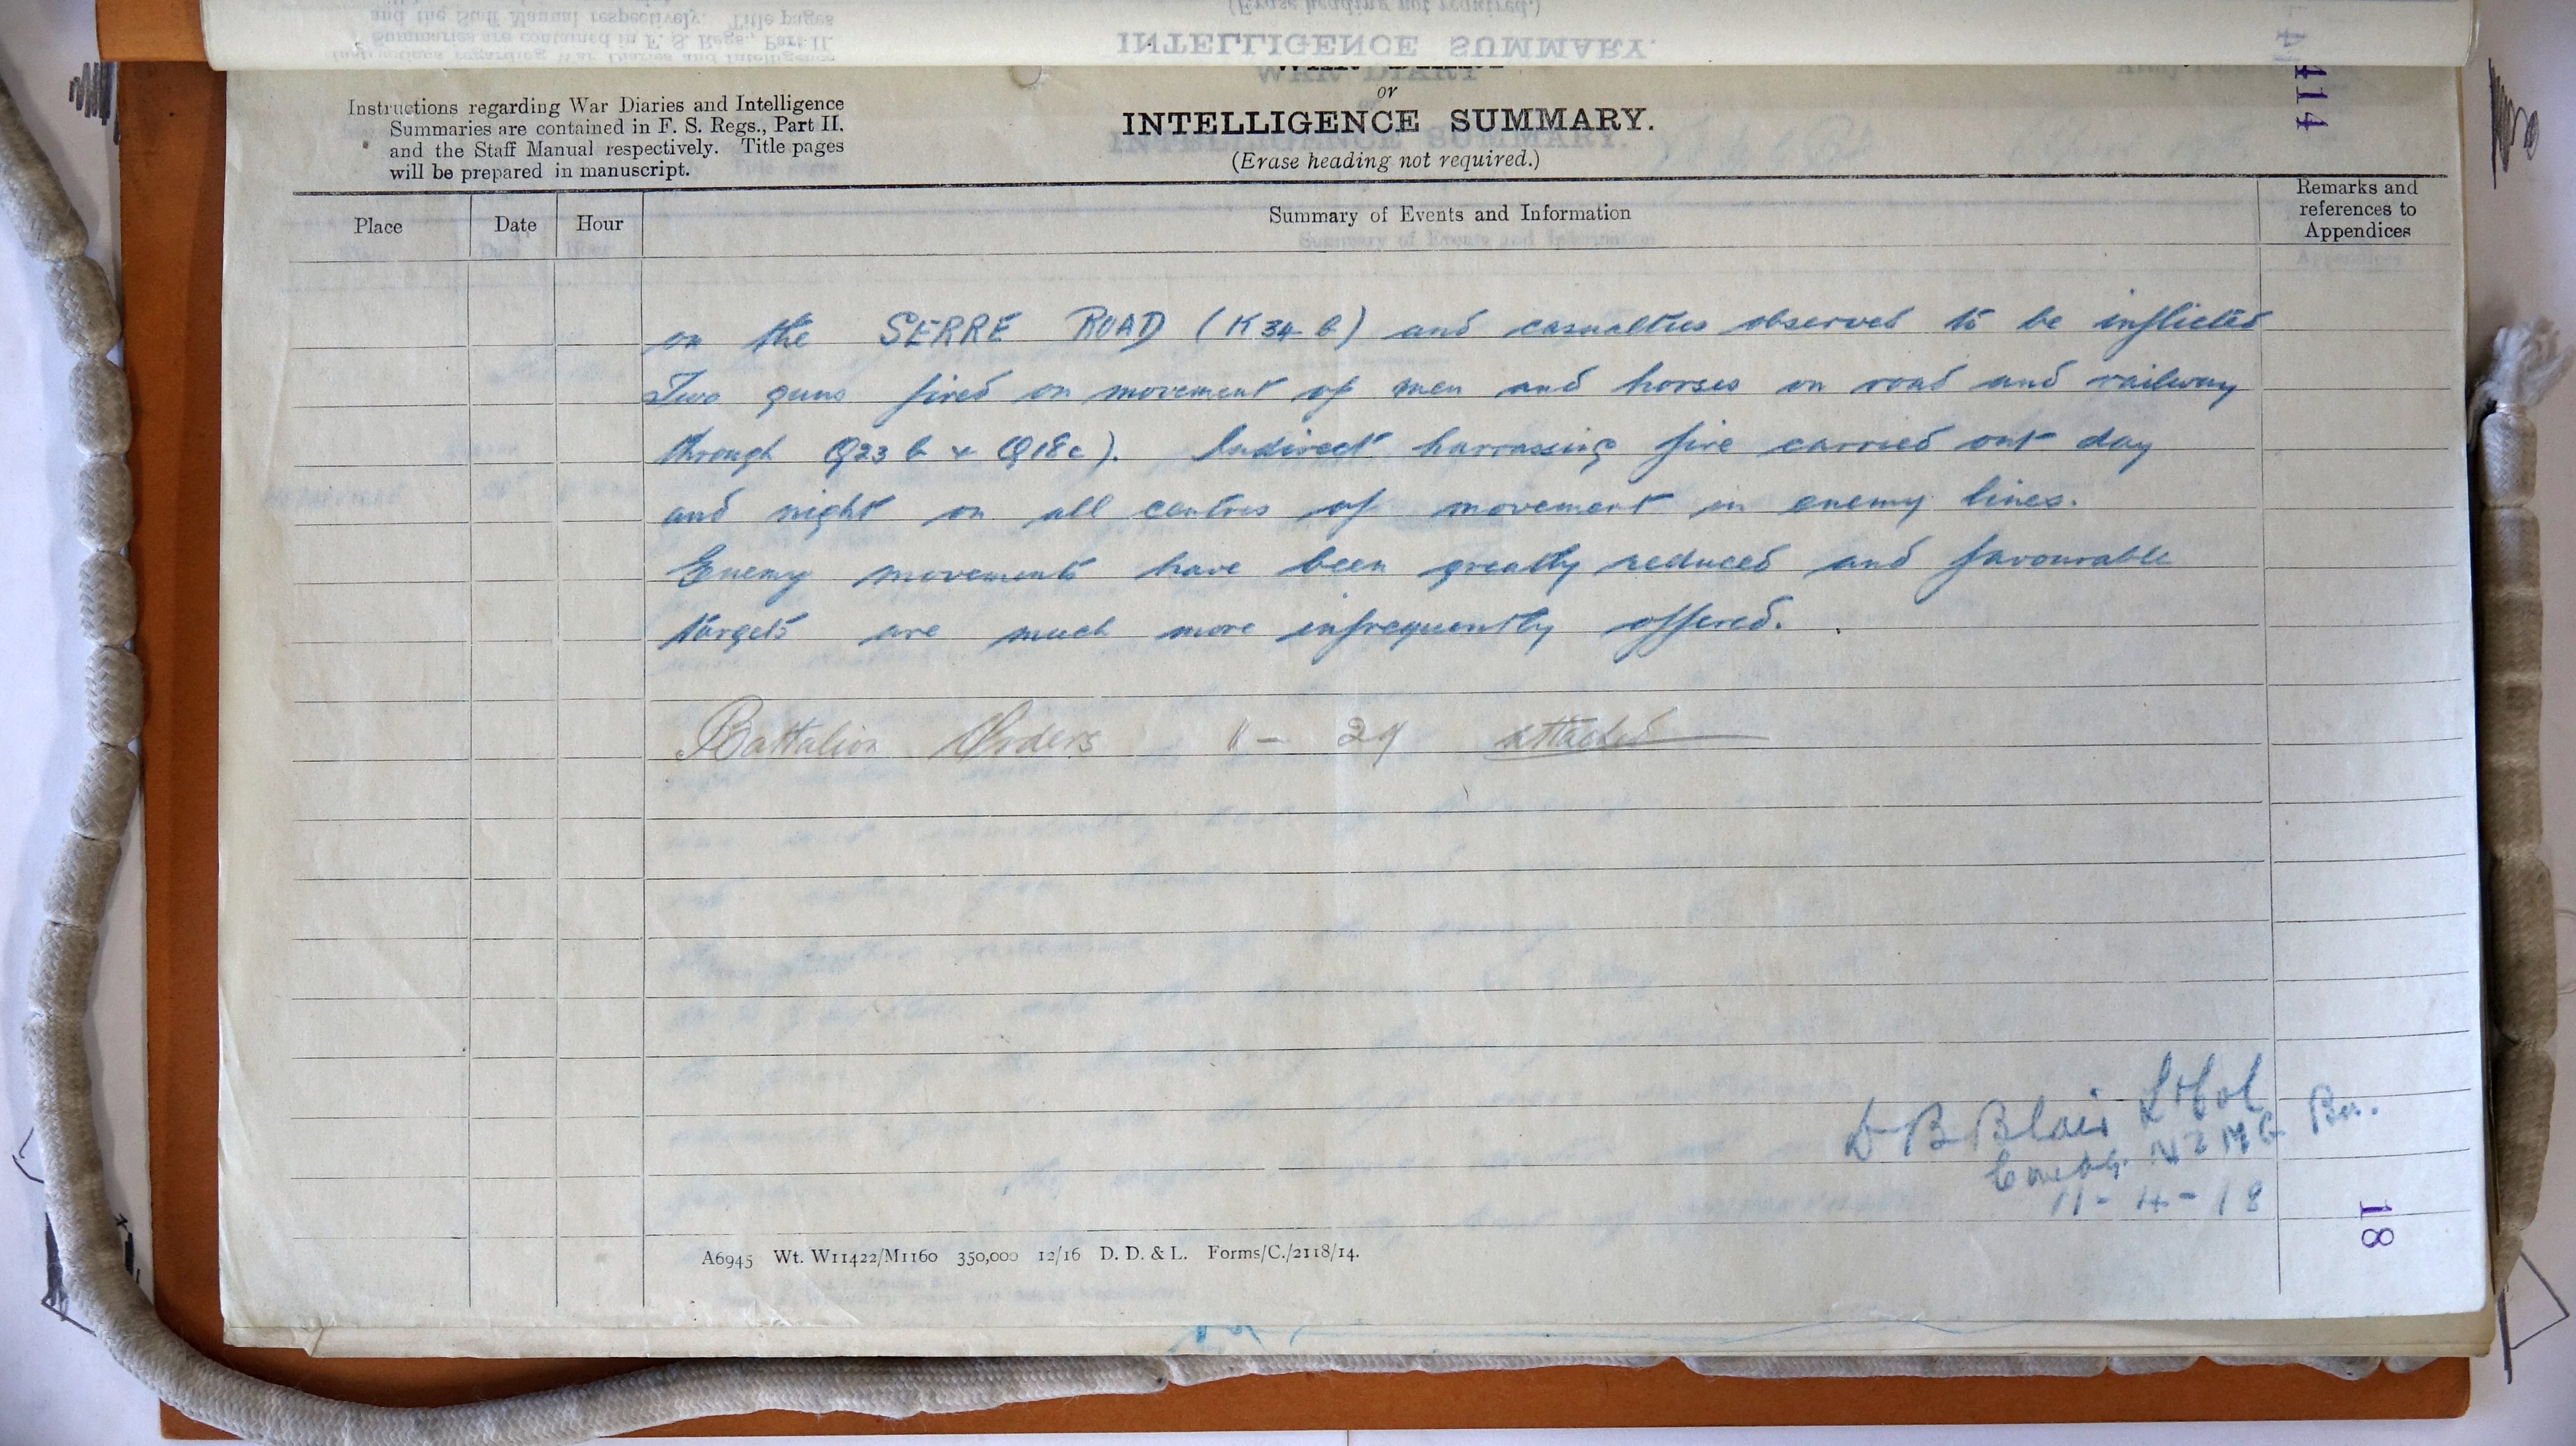 WAR DIARY
or
INTELLIGENCE SUMMARY.
(Erase heading not required.)
Instructions regarding War Diaries and Intelligence
Summaries are contained in F. S. Regs., Part II.
and the Staff Manual respectively. Title pages
will be prepared in manuscript.
414
Place
Date
Hour
Summary of Events and Information
Remarks and
references to
Appendices
on the SERRE ROAD (K 34 b) and casualties observed to be inflicted
Two guns fired on movement of men and horses on road and railway
through Q23 b & Q18c). Indirect harrassing fire carried out day
and night on all centres of movement in enemy lines.
Enemy movements have been greatly reduced and favourable
targets are much more infrequently offered.
Battalion Orders 11 - 29 attached
D B Blair Lt Col
Comdg. N Z M G Bn.
11-4-18
18
A6945 Wt. W11422/M1160 350,000 12/16 D. D. & L. Forms/C./2118/14.